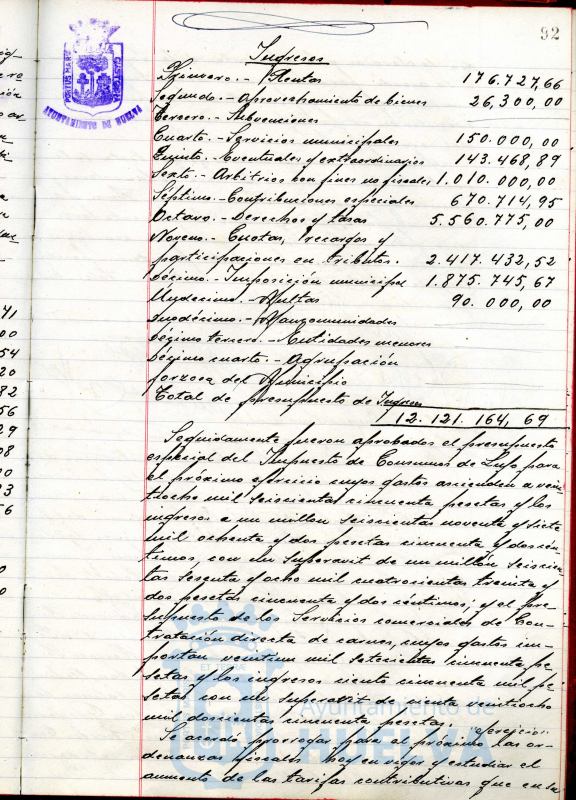 92
PORTUS MARIS
CUSTODIA
AYUNTAMIENTO DE HUELVA
Ingresos
Primero.- Rentas 176.727,66
Segundo.- Aprovechamiento de bienes 26,300,00
Tercero.- Subvenciones
Cuarto.- Servicios municipales 150.000,00
Quinto.- Eventuales y extraordinarios 143.468,89
Sexto.- Arbitrios con fines no fiscales 1.010.000,00
Séptimo.- Contribuciones especiales 670.714,95
Octavo.- Derechos y tasas 5.560.775,00
Noveno.- Cuotas, recargos y
participaciones en tributos. 2.417.432,52
Décimo.- Imposición municipal 1.875.745,67
Undecimo.- Multas 90.000,00
Duodécimo.- Mancomunidades
Décimo tercero.- Entidades menores
Décimo cuarto.- Agrupación
forzosa del Municipio
Total de presupuesto de Ingresos
12.121.164,69
Seguidamente fueron aprobados el presupuesto
especial del Impuesto de Consumos de Lujo para
el próximo ejercicio cuyos gastos ascienden a vein-
tiocho mil seiscientas cincuenta pesetas y los
ingresos a un millon seiscientas noventa y siete
mil ochenta y dos pesetas cincuenta y dos cén-
timos, con un superavit de un millón seiscien-
tas sesenta y ocho mil cuatrocientas treinta y
dos pesetas cincuenta y dos céntimos; y el pre-
supuesto de los Servicios comerciales de Con-
tratación directa de carnes, cuyos gastos im-
portan veintiun mil setecientas cincuenta pe-
setas y los ingresos ciento cincuenta mil pe-
setas con un superavit de ciento veintiocho
mil doscientas cincuenta pesetas.
ejercicio
Se acordó prorrogar para el próximo las or-
denanzas fiscales hoy en vigor y estudiar el
aumento de las tarifas contributivas que en su
Ayuntamiento de
HUELVA